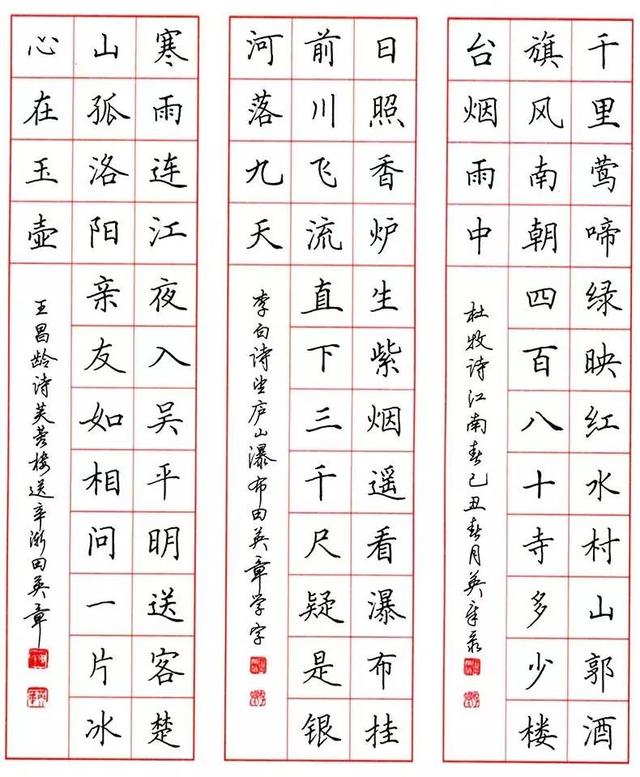 千里莺啼绿映红水村山郭酒
旗风南朝四百八十寺多少楼
台烟雨中
杜牧诗江南春己丑春月英章录
日照香炉生紫烟遥看瀑布挂
前川飞流直下三千尺疑是银
河落九天
李白诗望庐山瀑布田英章学字
寒雨连江夜入吴平明送客楚
山孤洛阳亲友如相问一片冰
心在玉壶
王昌龄诗芙蓉楼送辛渐田英章